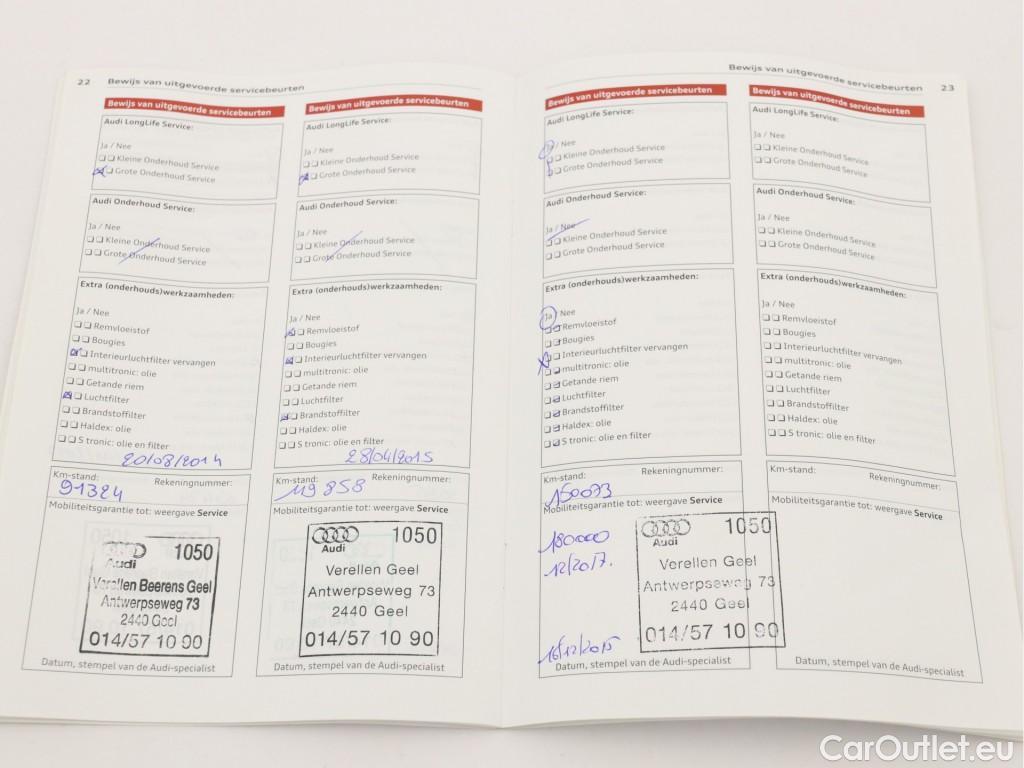 22 Bewijs van uitgevoerde servicebeurten
Bewijs van uitgevoerde servicebeurten
Audi LongLife Service:
Ja / Nee
Kleine Onderhoud Service
Grote Onderhoud Service
Audi Onderhoud Service:
Ja / Nee
Kleine Onderhoud Service
Grote Onderhoud Service
Extra (onderhouds)werkzaamheden:
Ja / Nee
Remvloeistof
Bougies
Interieurluchtfilter vervangen
multitronic: olie
Getande riem
Luchtfilter
Brandstoffilter
Haldex: olie
S tronic: olie en filter
20/08/2014
Km-stand: Rekeningnummer:
91324
Mobiliteitsgarantie tot: weergave Service
Audi 1050
Verellen Beerens Geel
Antwerpseweg 73
2440 Geel
014/57 10 90
Datum, stempel van de Audi-specialist
Bewijs van uitgevoerde servicebeurten
Audi LongLife Service:
Ja / Nee
Kleine Onderhoud Service
Grote Onderhoud Service
Audi Onderhoud Service:
Ja / Nee
Kleine Onderhoud Service
Grote Onderhoud Service
Extra (onderhouds)werkzaamheden:
Ja / Nee
Remvloeistof
Bougies
Interieurluchtfilter vervangen
multitronic: olie
Getande riem
Luchtfilter
Brandstoffilter
Haldex: olie
S tronic: olie en filter
28/04/2015
Km-stand: Rekeningnummer:
119 858
Mobiliteitsgarantie tot: weergave Service
Audi 1050
Verellen Geel
Antwerpseweg 73
2440 Geel
014/57 10 90
Datum, stempel van de Audi-specialist
Bewijs van uitgevoerde servicebeurten 23
Bewijs van uitgevoerde servicebeurten
Audi LongLife Service:
Ja / Nee
Kleine Onderhoud Service
Grote Onderhoud Service
Audi Onderhoud Service:
Ja / Nee
Kleine Onderhoud Service
Grote Onderhoud Service
Extra (onderhouds)werkzaamheden:
Ja / Nee
Remvloeistof
Bougies
Interieurluchtfilter vervangen
multitronic: olie
Getande riem
Luchtfilter
Brandstoffilter
Haldex: olie
S tronic: olie en filter
Km-stand: Rekeningnummer:
150073
Mobiliteitsgarantie tot: weergave Service
180000
12/2017.
Audi 1050
Verellen Geel
Antwerpseweg 73
2440 Geel
014/57 10 90
16/12/2015
Datum, stempel van de Audi-specialist
Bewijs van uitgevoerde servicebeurten
Audi LongLife Service:
Ja / Nee
Kleine Onderhoud Service
Grote Onderhoud Service
Audi Onderhoud Service:
Ja / Nee
Kleine Onderhoud Service
Grote Onderhoud Service
Extra (onderhouds)werkzaamheden:
Ja / Nee
Remvloeistof
Bougies
Interieurluchtfilter vervangen
multitronic: olie
Getande riem
Luchtfilter
Brandstoffilter
Haldex: olie
S tronic: olie en filter
Km-stand: Rekeningnummer:
Mobiliteitsgarantie tot: weergave Service
Datum, stempel van de Audi-specialist
CarOutlet.eu